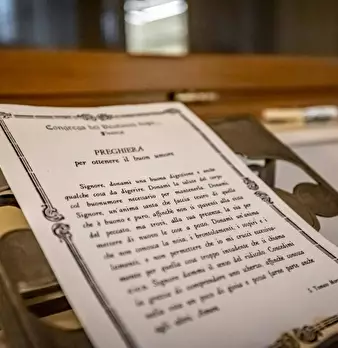 Congrega dei
PREGHIERA
per ottenere il buon umore
Signore, donami una buona digestione e anche
qualche cosa da digerire. Donami la salute del corpo
col buonumore necessario per mantenerla. Donami,
Signore, un'anima santa che faccia tesoro di quello
che è buono e puro, affinché non si spaventi alla vista
del peccato, ma trovi, alla sua presenza, la via per
mettere di nuovo le cose a posto. Donami un'anima
che non conosca la noia, i brontolamenti, i sospiri e i
lamenti, e non permettere che io mi crucci eccessiva-
mente per quella cosa troppo invadente che si chiama
Signore, dammi il senso del ridicolo. Concedimi
la grazia di comprendere uno scherzo, affinché conosca
nella vita un poco di gioia e possa farne parte anche
agli altri.